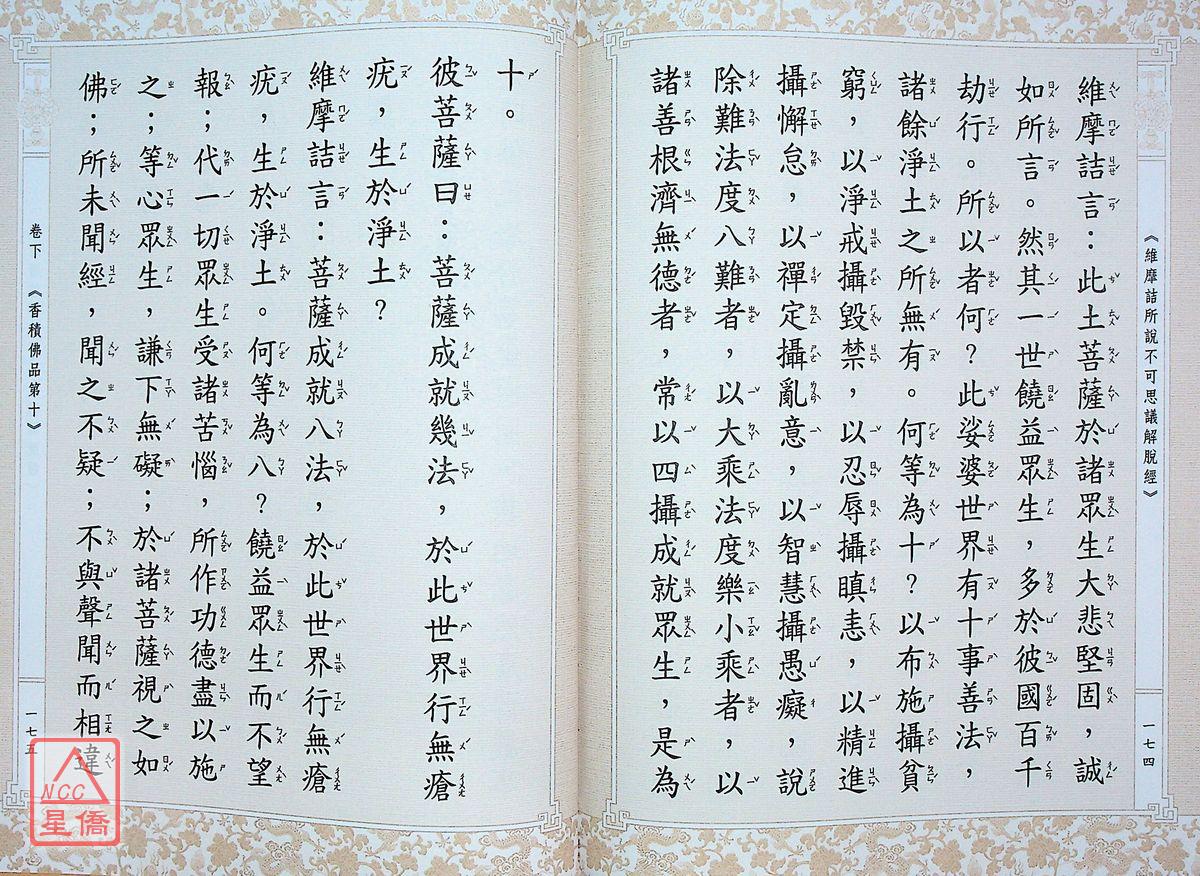 《維摩詰所說不可思議解脫經》
一七四
維摩詰言：此土菩薩於諸眾生大悲堅固，誠
如所言。然其一世饒益眾生，多於彼國百千
劫行。所以者何？此娑婆世界有十事善法，
諸餘淨土之所無有。何等為十？以布施攝貧
窮，以淨戒攝毀禁，以忍辱攝瞋恚，以精進
攝懈怠，以禪定攝亂意，以智慧攝愚癡，說
除難法度八難者，以大乘法度樂小乘者，以
諸善根濟無德者，常以四攝成就眾生，是為
十。
彼菩薩曰：菩薩成就幾法，於此世界行無瘡
疣，生於淨土？
維摩詰言：菩薩成就八法，於此世界行無瘡
疣，生於淨土。何等為八？饒益眾生而不望
報；代一切眾生受諸苦惱，所作功德盡以施
之；等心眾生，謙下無礙；於諸菩薩視之如
佛；所未聞經，聞之不疑；不與聲聞而相違
卷下
《香積佛品第十》
一七五
NCC
星僑